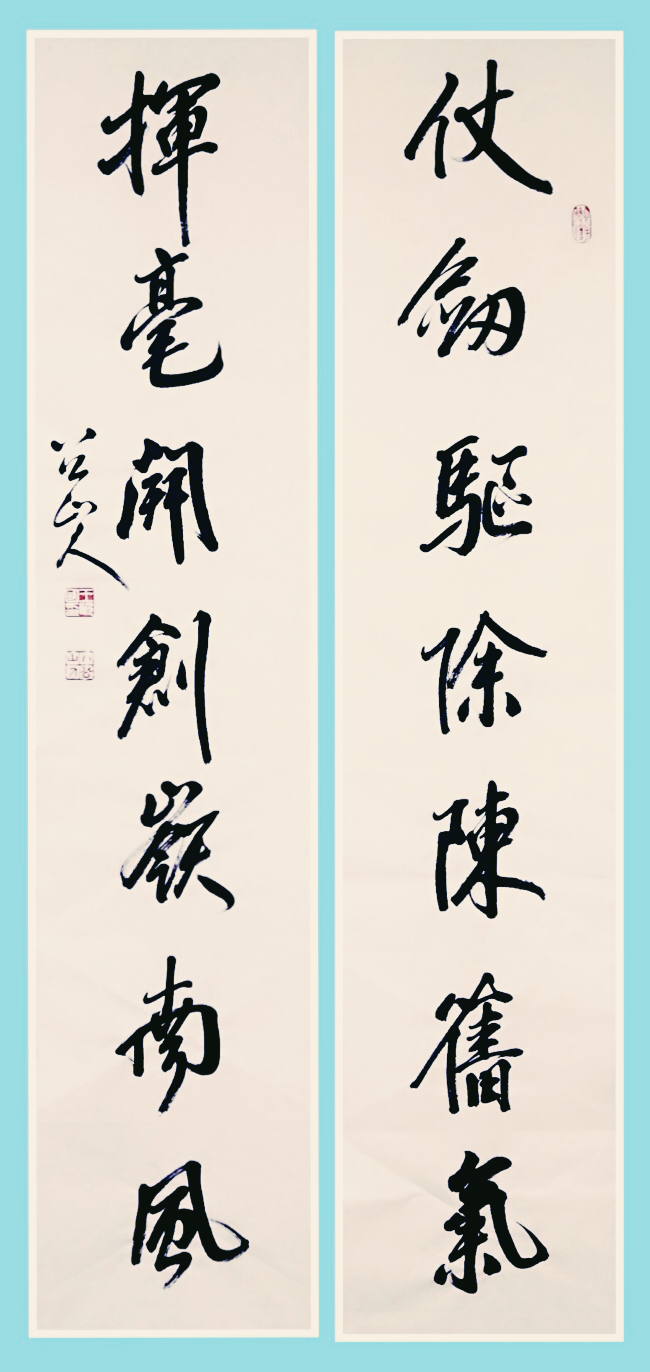 仗劒驅除陳舊氣
揮毫開創嶺南風
公山人